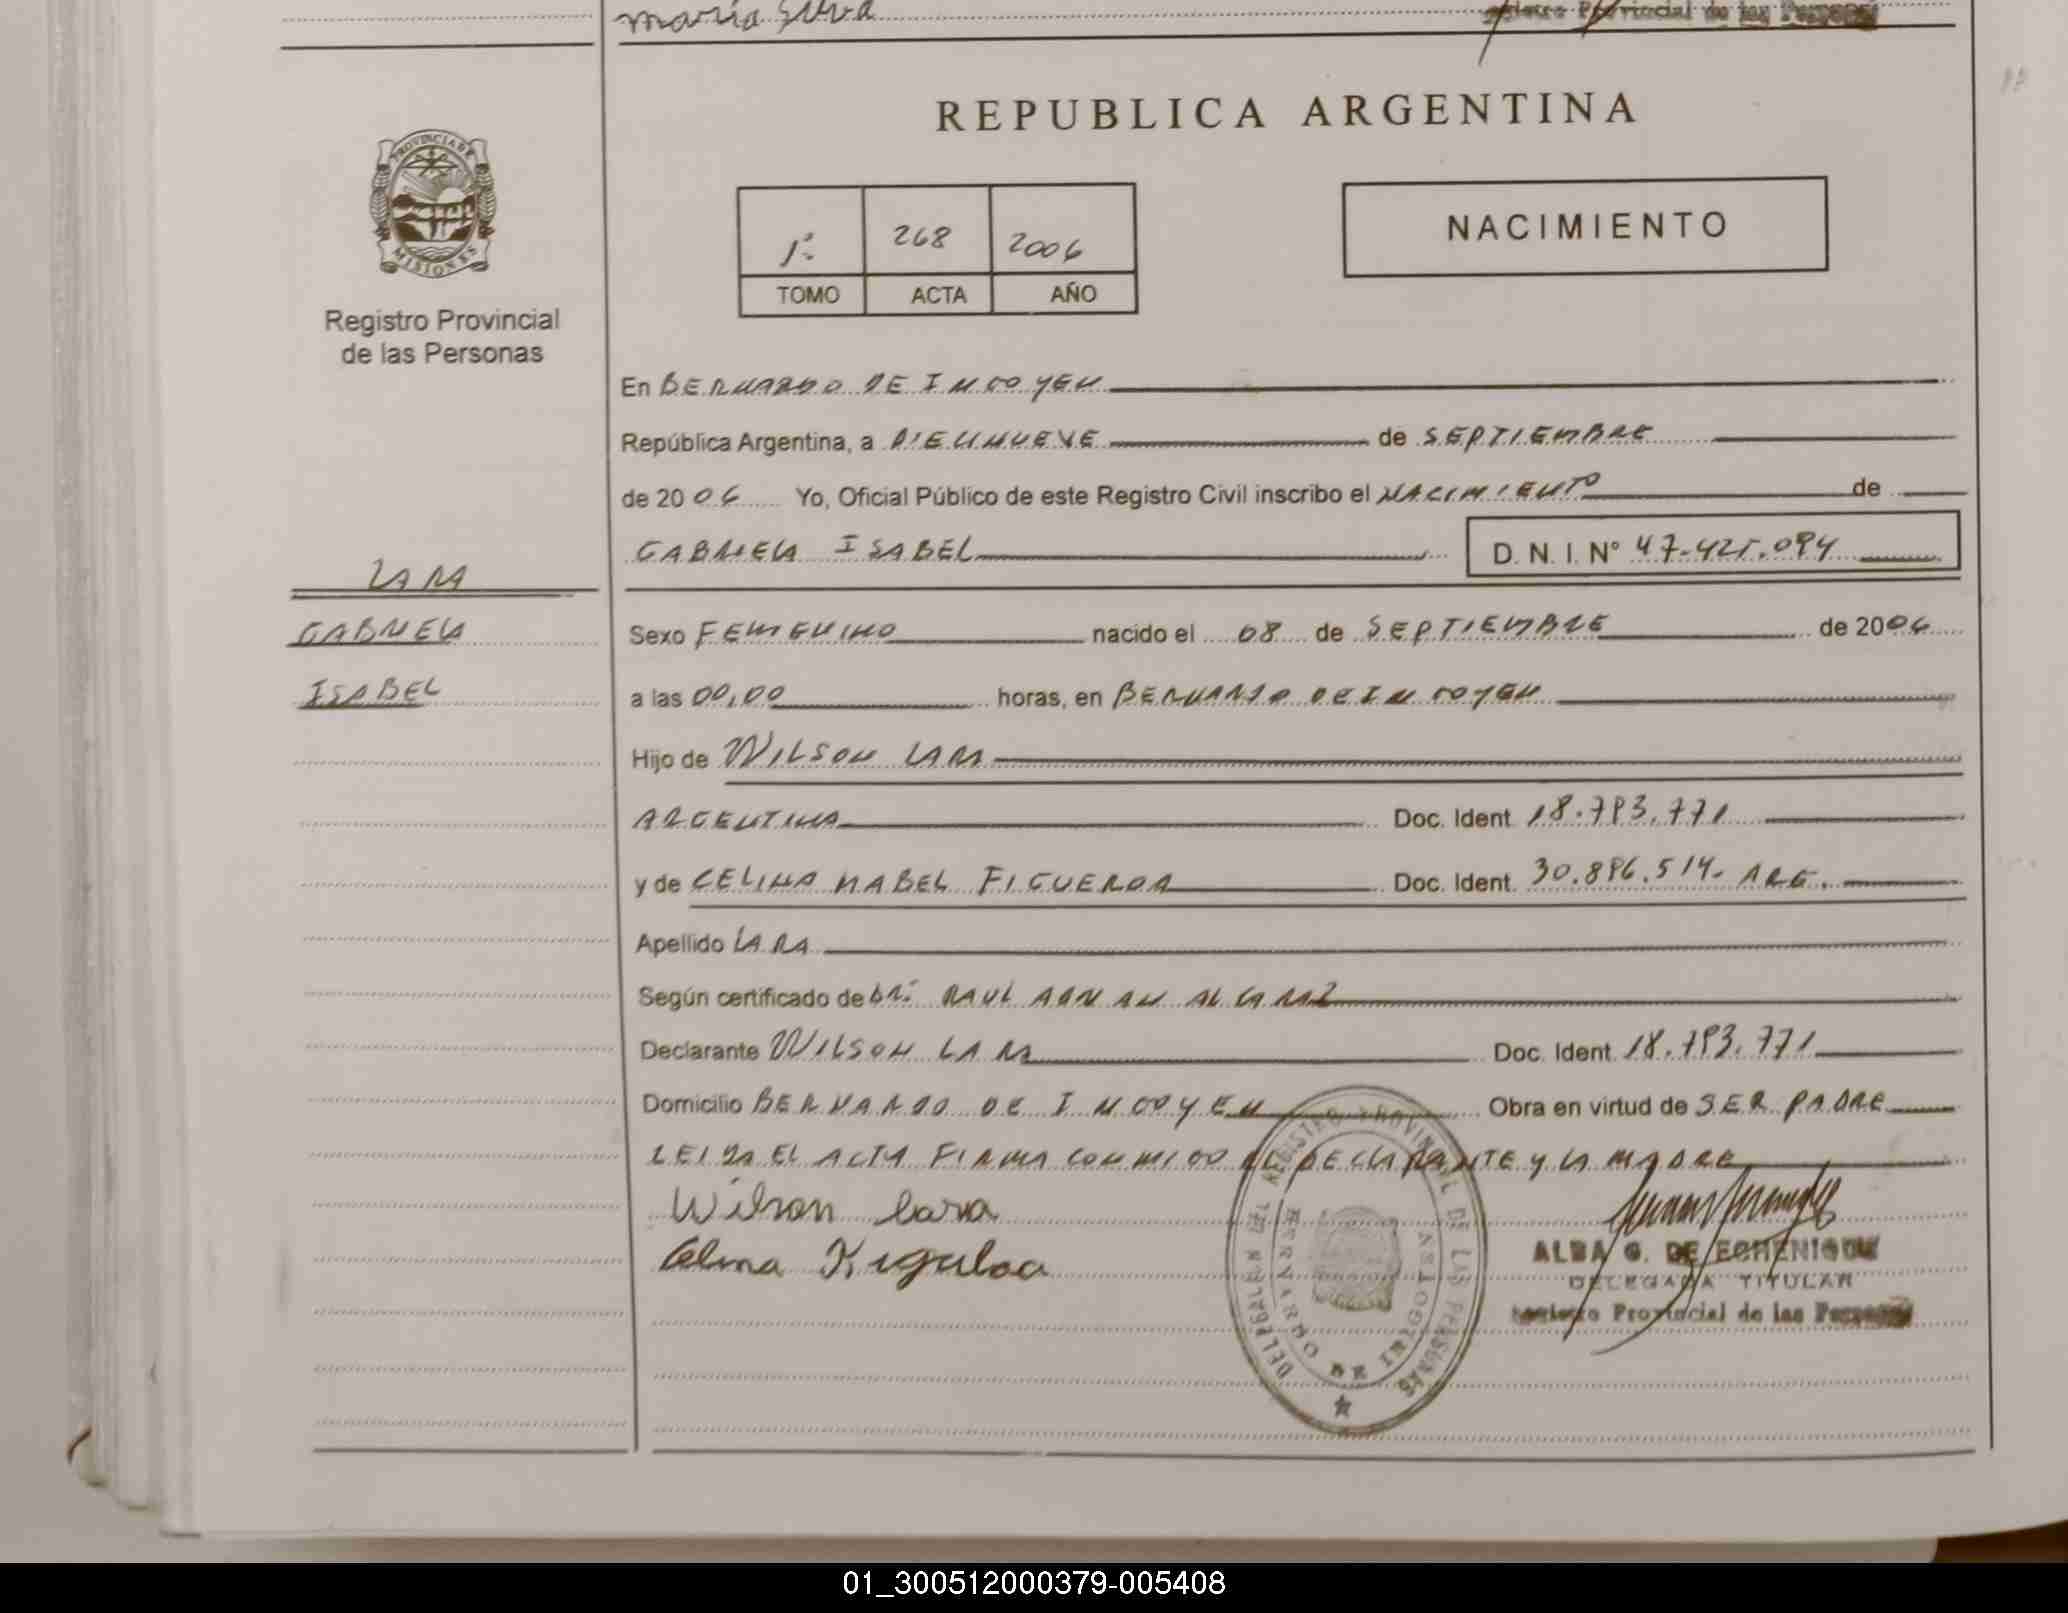 maria Silva
Registro Provincial de las Personas
REPUBLICA ARGENTINA
PROVINCIA DE
MISIONES
Registro Provincial
de las Personas
1º 268 2006
TOMO ACTA AÑO
NACIMIENTO
En BERNARDO DE IRIGOYEN
República Argentina, a DIECINUEVE de SEPTIEMBRE
de 2006 Yo, Oficial Público de este Registro Civil inscribo el NACIMIENTO de
GABRIELA ISABEL D. N. I. Nº 47.425.094
LARA
GABRIELA
ISABEL
Sexo FEMENINO nacido el 08 de SEPTIEMBRE de 2006
a las 00,00 horas, en BERNARDO DE IRIGOYEN
Hijo de WILSON LARA
ARGENTINA Doc. Ident. 18.793.771
y de CELINA MABEL FIGUEROA Doc. Ident. 30.896.514. ARG.
Apellido LARA
Según certificado de DR. RAUL ALCARAZ
Declarante WILSON LARA Doc. Ident. 18.793.771
Domicilio BERNARDO DE IRIGOYEN Obra en virtud de SER PADRE
LEIDA EL ACTA FIRMA CONMIGO EL DECLARANTE Y LA MADRE
Wilson Lara
Celina
ALBA G. DE ECHENIQUE
DELEGADA TITULAR
Registro Provincial de las Personas
DELEGACION DEL REGISTRO PROVINCIAL DE LAS PERSONAS
BERNARDO DE IRIGOYEN
01_300512000379-005408